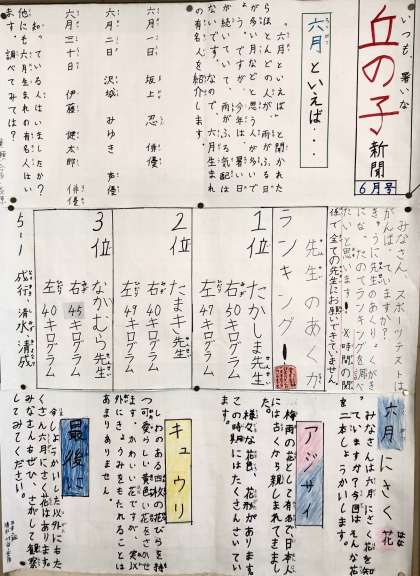 いつも、暑いな
丘の子
新聞
6月号
六月といえば・・・
"六月といえば"と聞かれた
らほとんどの人が雨がふる日
が多い月などと思う人がらで
しょう。ですが、今年は暑い日
が続いていて、雨がふる気配は
ないです。なので、六月生まれ
の有名人を紹介します。
六月一日 坂上忍 俳優
六月二日 沢城みゆき 声優
六月三十日 伊藤健太郎 俳優
知っている人はいましたか？
他にも六月生まれの有名人はい
ます。調べてみては？
みなさん、スポーツテストは、
がんばっていますか？
きゅうに先生のあくりょくがき
になったのでランキングを調べ
たいと思います！ ※時間の関
係で全ての先生にお願いできていません。
先生のあくカ
ランキング！
1位
たかしま先生
右50キログラム
左47キログラム
2位
たまき先生
右49キログラム
左48キログラム
3位
なかむら先生
右45キログラム
左40キログラム
5-1 成行・清水・清成
六月にさく花
みなさんは六月にさく花を知
っていますか？今回はそんな花
を二本しょうかいします。
アジサイ
梅雨の花として有名で、日本人
には古くから親しまれてきまし
た。
様々な花色、花形があります。
この時期にはたくさんさいてい
キュウリ
しわのある四枚の花びらを持
つ可愛らしい黄色い花をさかせ
ます。かわいい花ですが、実以
外にきょうみをもたれることは
あまりありません。
最後に
今しょうかいした以外にもた
くさん六月にさく花はあります。
みなさんもぜひ、さがして観察
してみてください。